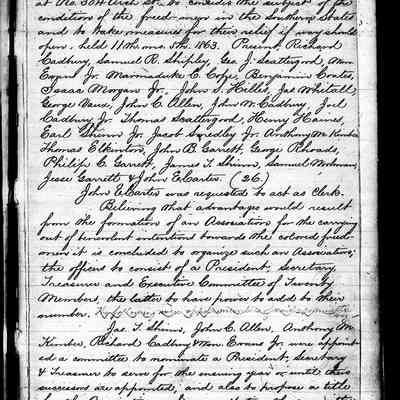 at No 304 Arch St. to consider the subject of the
condition of the freed-men in the Southern States
and to take measures for their relief if way should
open, held 11th mo. 5th. 1863. Present, Richard
Cadbury, Samuel R. Shipley, Geo. J. Scattergood, Wm
Evans Jr. Marmaduke C. Cope, Benjamin Coates,
Isaac Morgan Jr. John S. Hilles, Jas Whitall,
George Vaux, John C. Allen, John W. Cadbury, Joel
Cadbury Jr. Thomas Scattergood, Henry Haines,
Earl Shinn Jr. Jacob Smedley Jr. Anthony M. Kimber
Thomas Elkinton, John B Garrett, George Rhoads,
Philip C. Garrett, James T. Shinn, Samuel
Jesse Garrett & John E. Carter. (26.)
John E Carter was requested to act as Clerk.
Believing that advantages would result
from the formation of an Association for the carrying
out of benevolent intentions towards the colored freed-
men it is concluded to organize such an Association;
the officers to consist of a President, Secretary,
Treasurer and Executive Committee of Twenty
Members, the latter to have power to add to their
number.
Jas. T. Shinn, John C. Allen, Anthony M.
Kimber, Richard Cadbury & Wm. Evans Jr. were appoint-
ed a committee to nominate a President, Secretary
& Treasurer to serve for the ensuing year or until their
successors are appointed, and also to propose a title